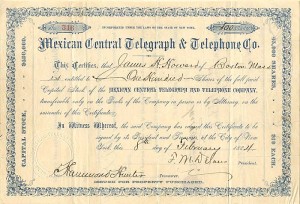 INCORPORATED UNDER THE LAWS OF THE STATE OF NEW YORK.
100
Mexican Central Telegraph & Telephone Co.
This Certifies, that James H. Howard of Boston Mass
is entitled to One Hundred Shares of the full paid
Capital Stock of the MEXICAN CENTRAL TELEGRAPH AND TELEPHONE COMPANY,
transferable only on the Books of the Company in person or by Attorney on the
surrender of this Certificate.
In Witness Whereof, the said Company has caused this Certificate to be
signed by its President and Treasurer, at the City of New
York this 8th day of February 1884
President.
ISSUED FOR PROPERTY PURCHASED.
CAPITAL STOCK,
SHARES.
$10 EACH.